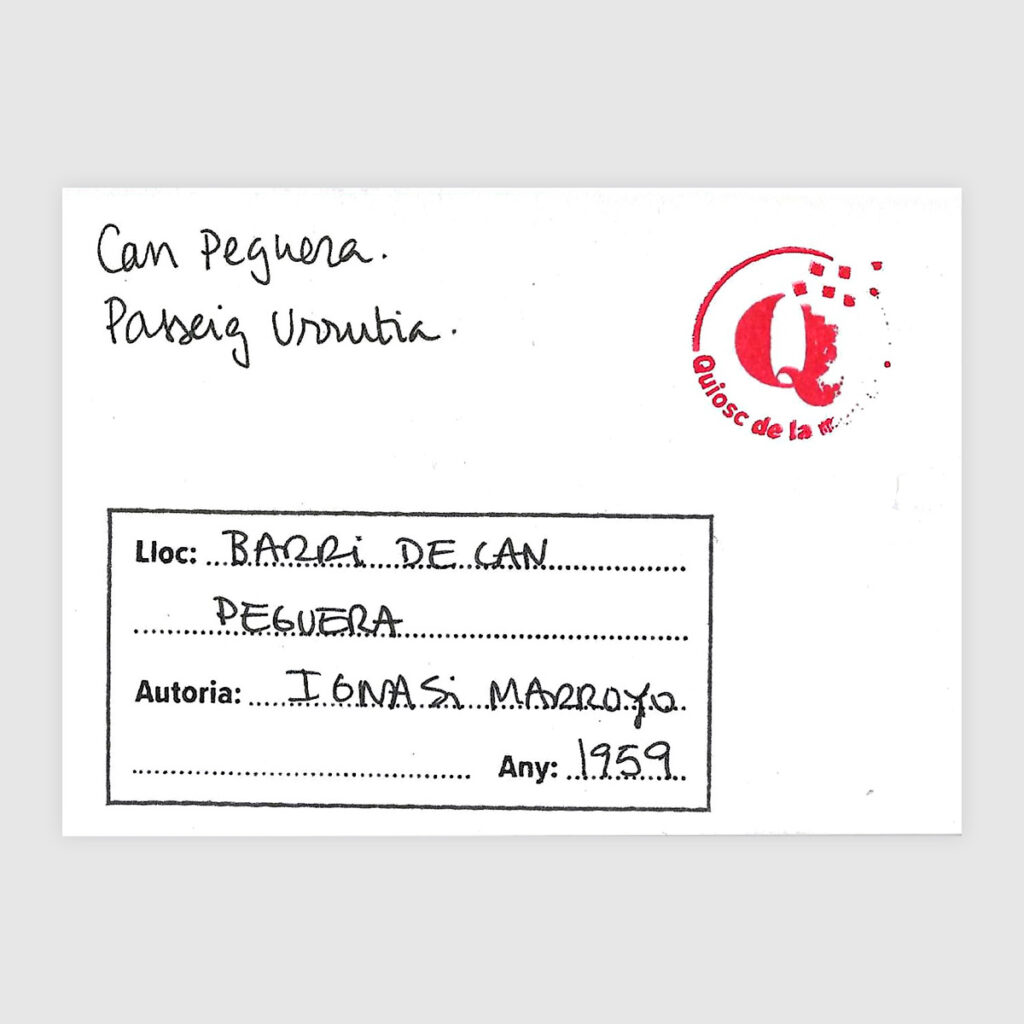 Can Peguera.
Passeig Urrutia.
Q
Quiosc de la
Lloc: BARRi DE CAN
PEGUERA
Autoria: IGNASi MARROYO
Any: 1959